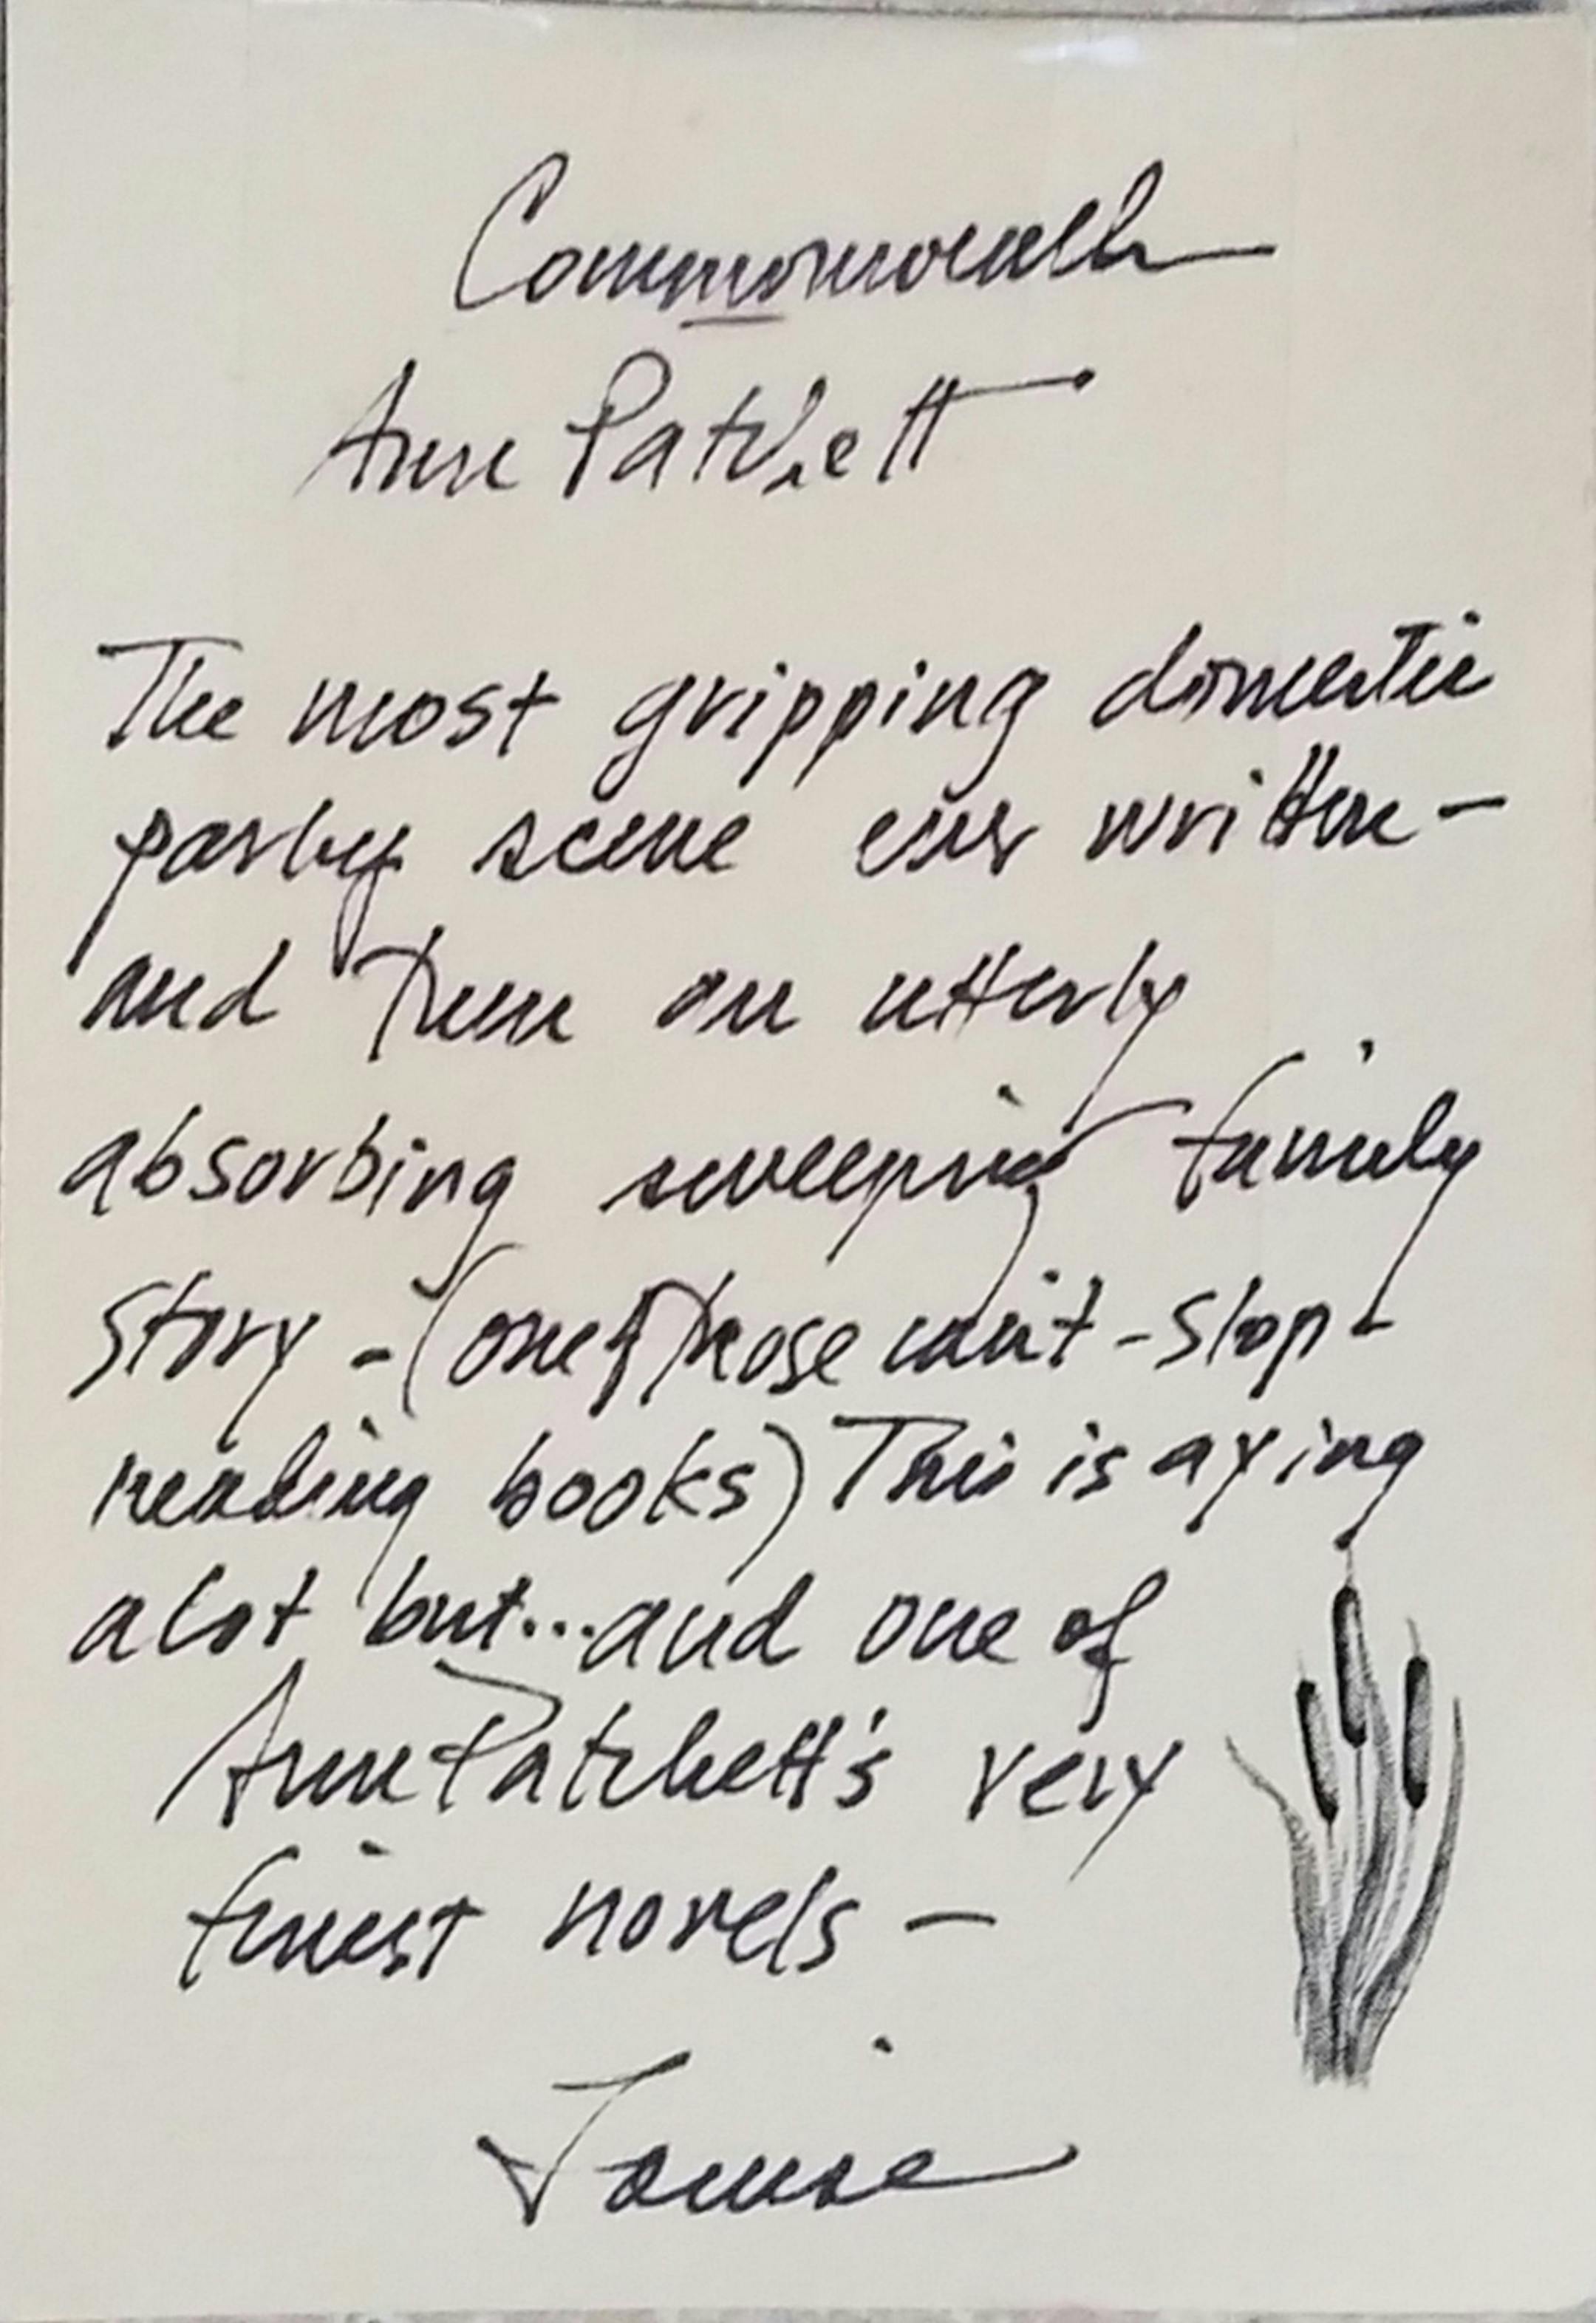 Commonwealth
Ann Patchett
The most gripping domestic
party scene ever written –
and then an utterly
absorbing sweeping family
story – (one of those can't-stop-
reading books) This is aying
a lot but...and one of
Ann Patchett's very
finest novels –
Louise